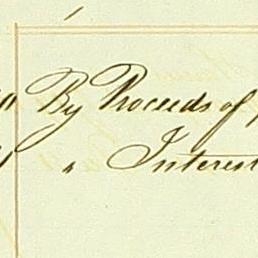 By Proceeds of
" Interest